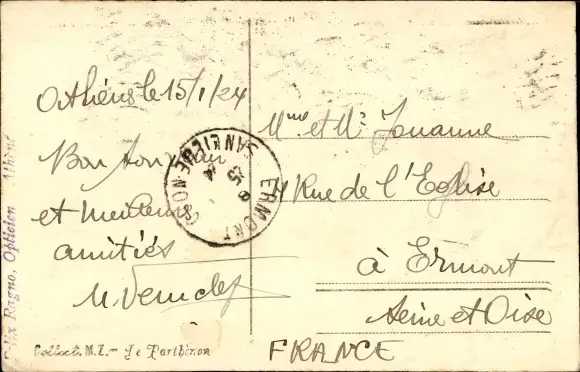 Athènes le 15/1/24
Bonton
et meilleures
amitiés
Mme et Mr Jouanne
4 Rue de l'Eglise
à Ermont
Seine et Oise
FRANCE
ERMONT
SANNOIS
Felix Ragno, Opticien Athènes
Collect. M.Z. - Le Parthénon